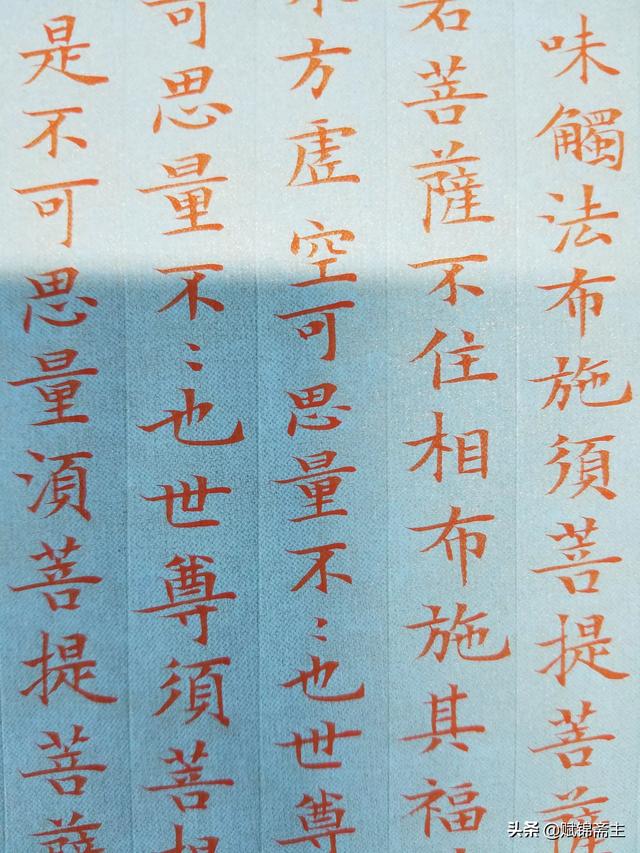 味觸法布施須菩提菩薩
若菩薩不住相布施其福
方虛空可思量不〻也世尊
可思量不〻也世尊須菩提
是不可思量須菩提菩薩
头条 @赋锦斋主